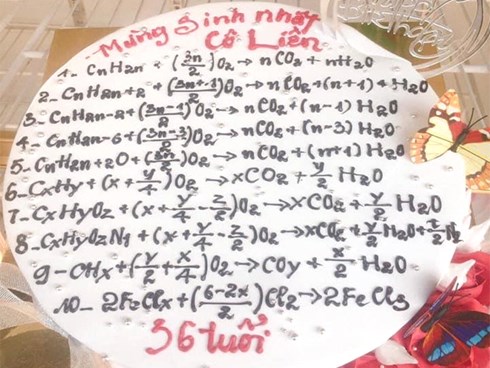 Mừng sinh nhật
Cô Liên
1- CnH2n + (3n/2)O2 → nCO2 + nH2O
2- CnH2n+2 + (3n+1/2)O2 → nCO2 + (n+1) H2O
3- CnH2n-2 + (3n-1/2)O2 → nCO2 + (n-1) H2O
4- CnH2n-6 + (3n-3/2)O2 → nCO2 + (n-3) H2O
5- CnH2n+2O + (3n/2)O2 → nCO2 + (n+1) H2O
6- CxHy + (x + y/4)O2 → xCO2 + y/2 H2O
7- CxHyOz + (x + y/4 - z/2)O2 → xCO2 + y/2 H2O
8- CxHyOzNt + (x + y/4 - z/2)O2 → xCO2 + y/2 H2O + t/2 N2
9- CHx + (y/2 + x/4)O2 → COy + x/2 H2O
10- 2FeClx + (6-2x/2)Cl2 → 2FeCl3
36 tuổi